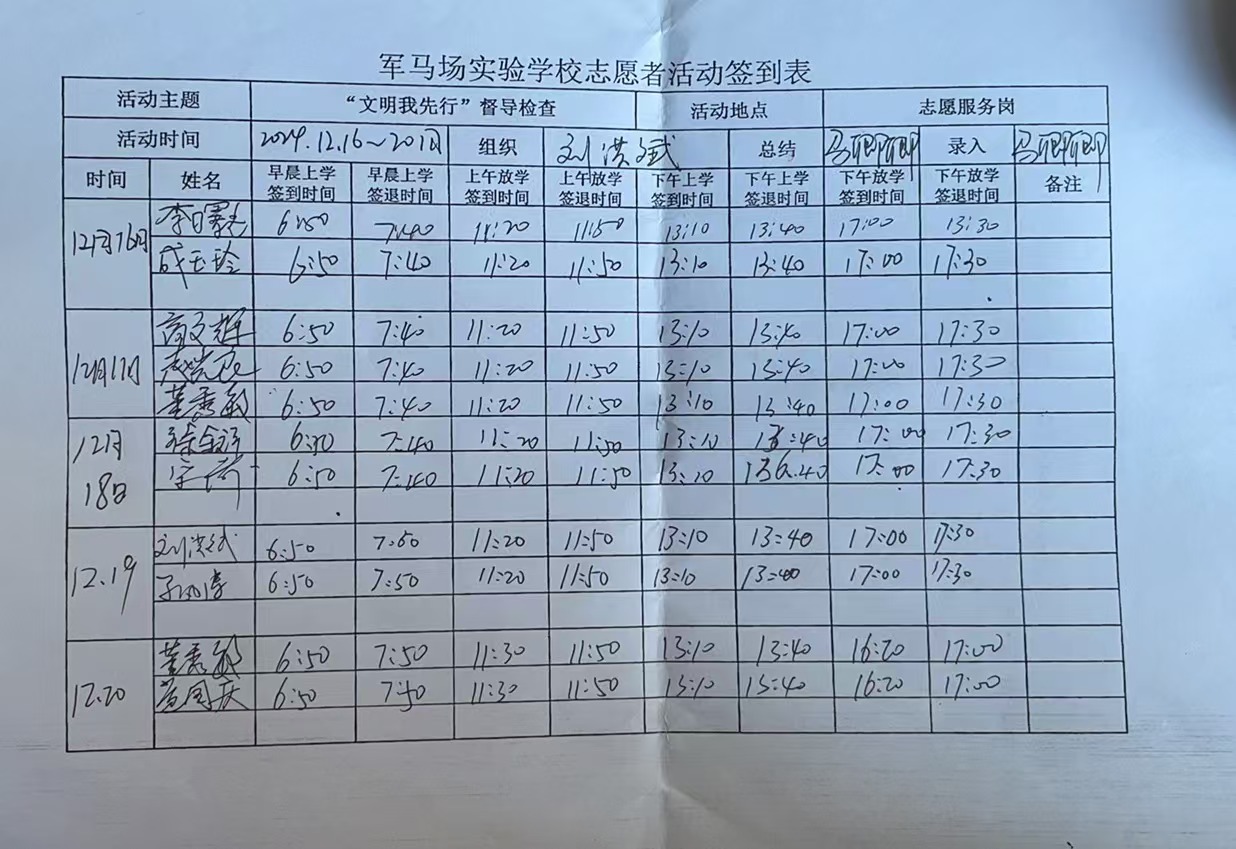 军马场实验学校志愿者活动签到表
活动主题 “文明我先行”督导检查 活动地点 志愿服务岗
活动时间 2024.12.16~20日 组织 刘洪斌 总结 马卿卿 录入 马卿卿
时间 姓名 早晨上学签到时间 早晨上学签退时间 上午放学签到时间 上午放学签退时间 下午上学签到时间 下午上学签退时间 下午放学签到时间 下午放学签退时间 备注
12月16日 6:50 7:40 11:20 11:50 13:10 13:40 17:00 13:30
成玉玲 6:50 7:40 11:20 11:50 13:10 13:40 17:00 17:30
12月17日 6:50 7:40 11:20 11:50 13:10 13:40 17:00 17:30
6:50 7:40 11:20 11:50 13:10 13:40 17:00 17:30
董秀敏 6:50 7:40 11:20 11:50 13:10 13:40 17:00 17:30
12月18日 6:50 7:40 11:20 11:50 13:10 13:40 17:00 17:30
6:50 7:40 11:20 11:50 13:10 17:00 17:30
12.19 刘洪斌 6:50 7:50 11:20 11:50 13:10 13:40 17:00 17:30
6:50 7:50 11:20 11:50 13:10 13:40 17:00 17:30
12.20 董秀敏 6:50 7:50 11:30 11:50 13:10 13:40 16:20 17:00
6:50 7:50 11:30 11:50 13:10 13:40 16:20 17:00